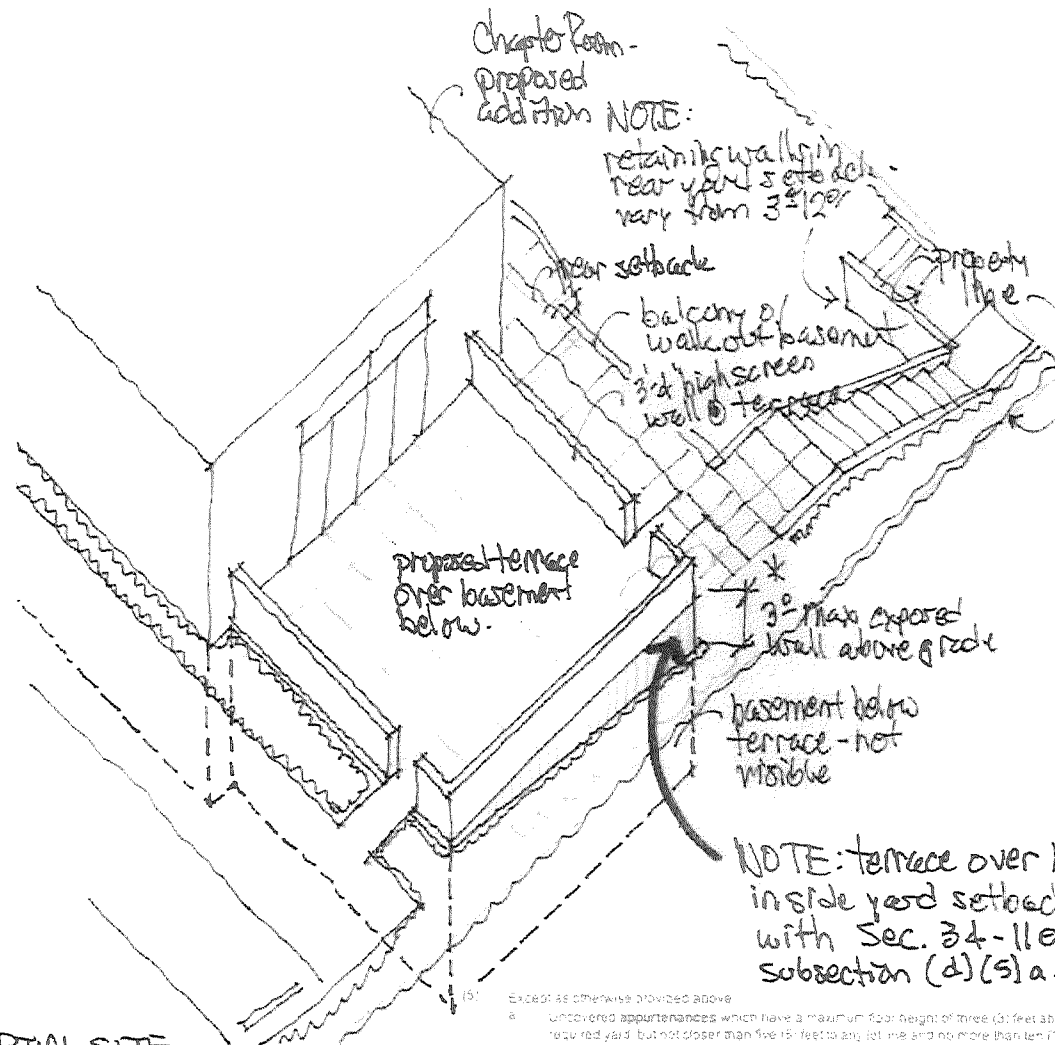 Chapter Room -
proposed
addition
NOTE:
retaining walls in
rear yard setback
vary from
rear setback
property
line
balcony o/
walkout basement
3'-4" high screen
wall @ terrace
proposed terrace
over basement
below.
3'-0" max exposed
wall above grade
basement below
terrace - not
visible
NOTE: terrace over
inside yard setback
with Sec. 34-11
subsection (d)(5)a.
(5) Except as otherwise provided above
a Uncovered appurtenances which have a maximum floor height of three (3) feet
required yard but not closer than five (5) feet to any lot line and no more than ten
SITE